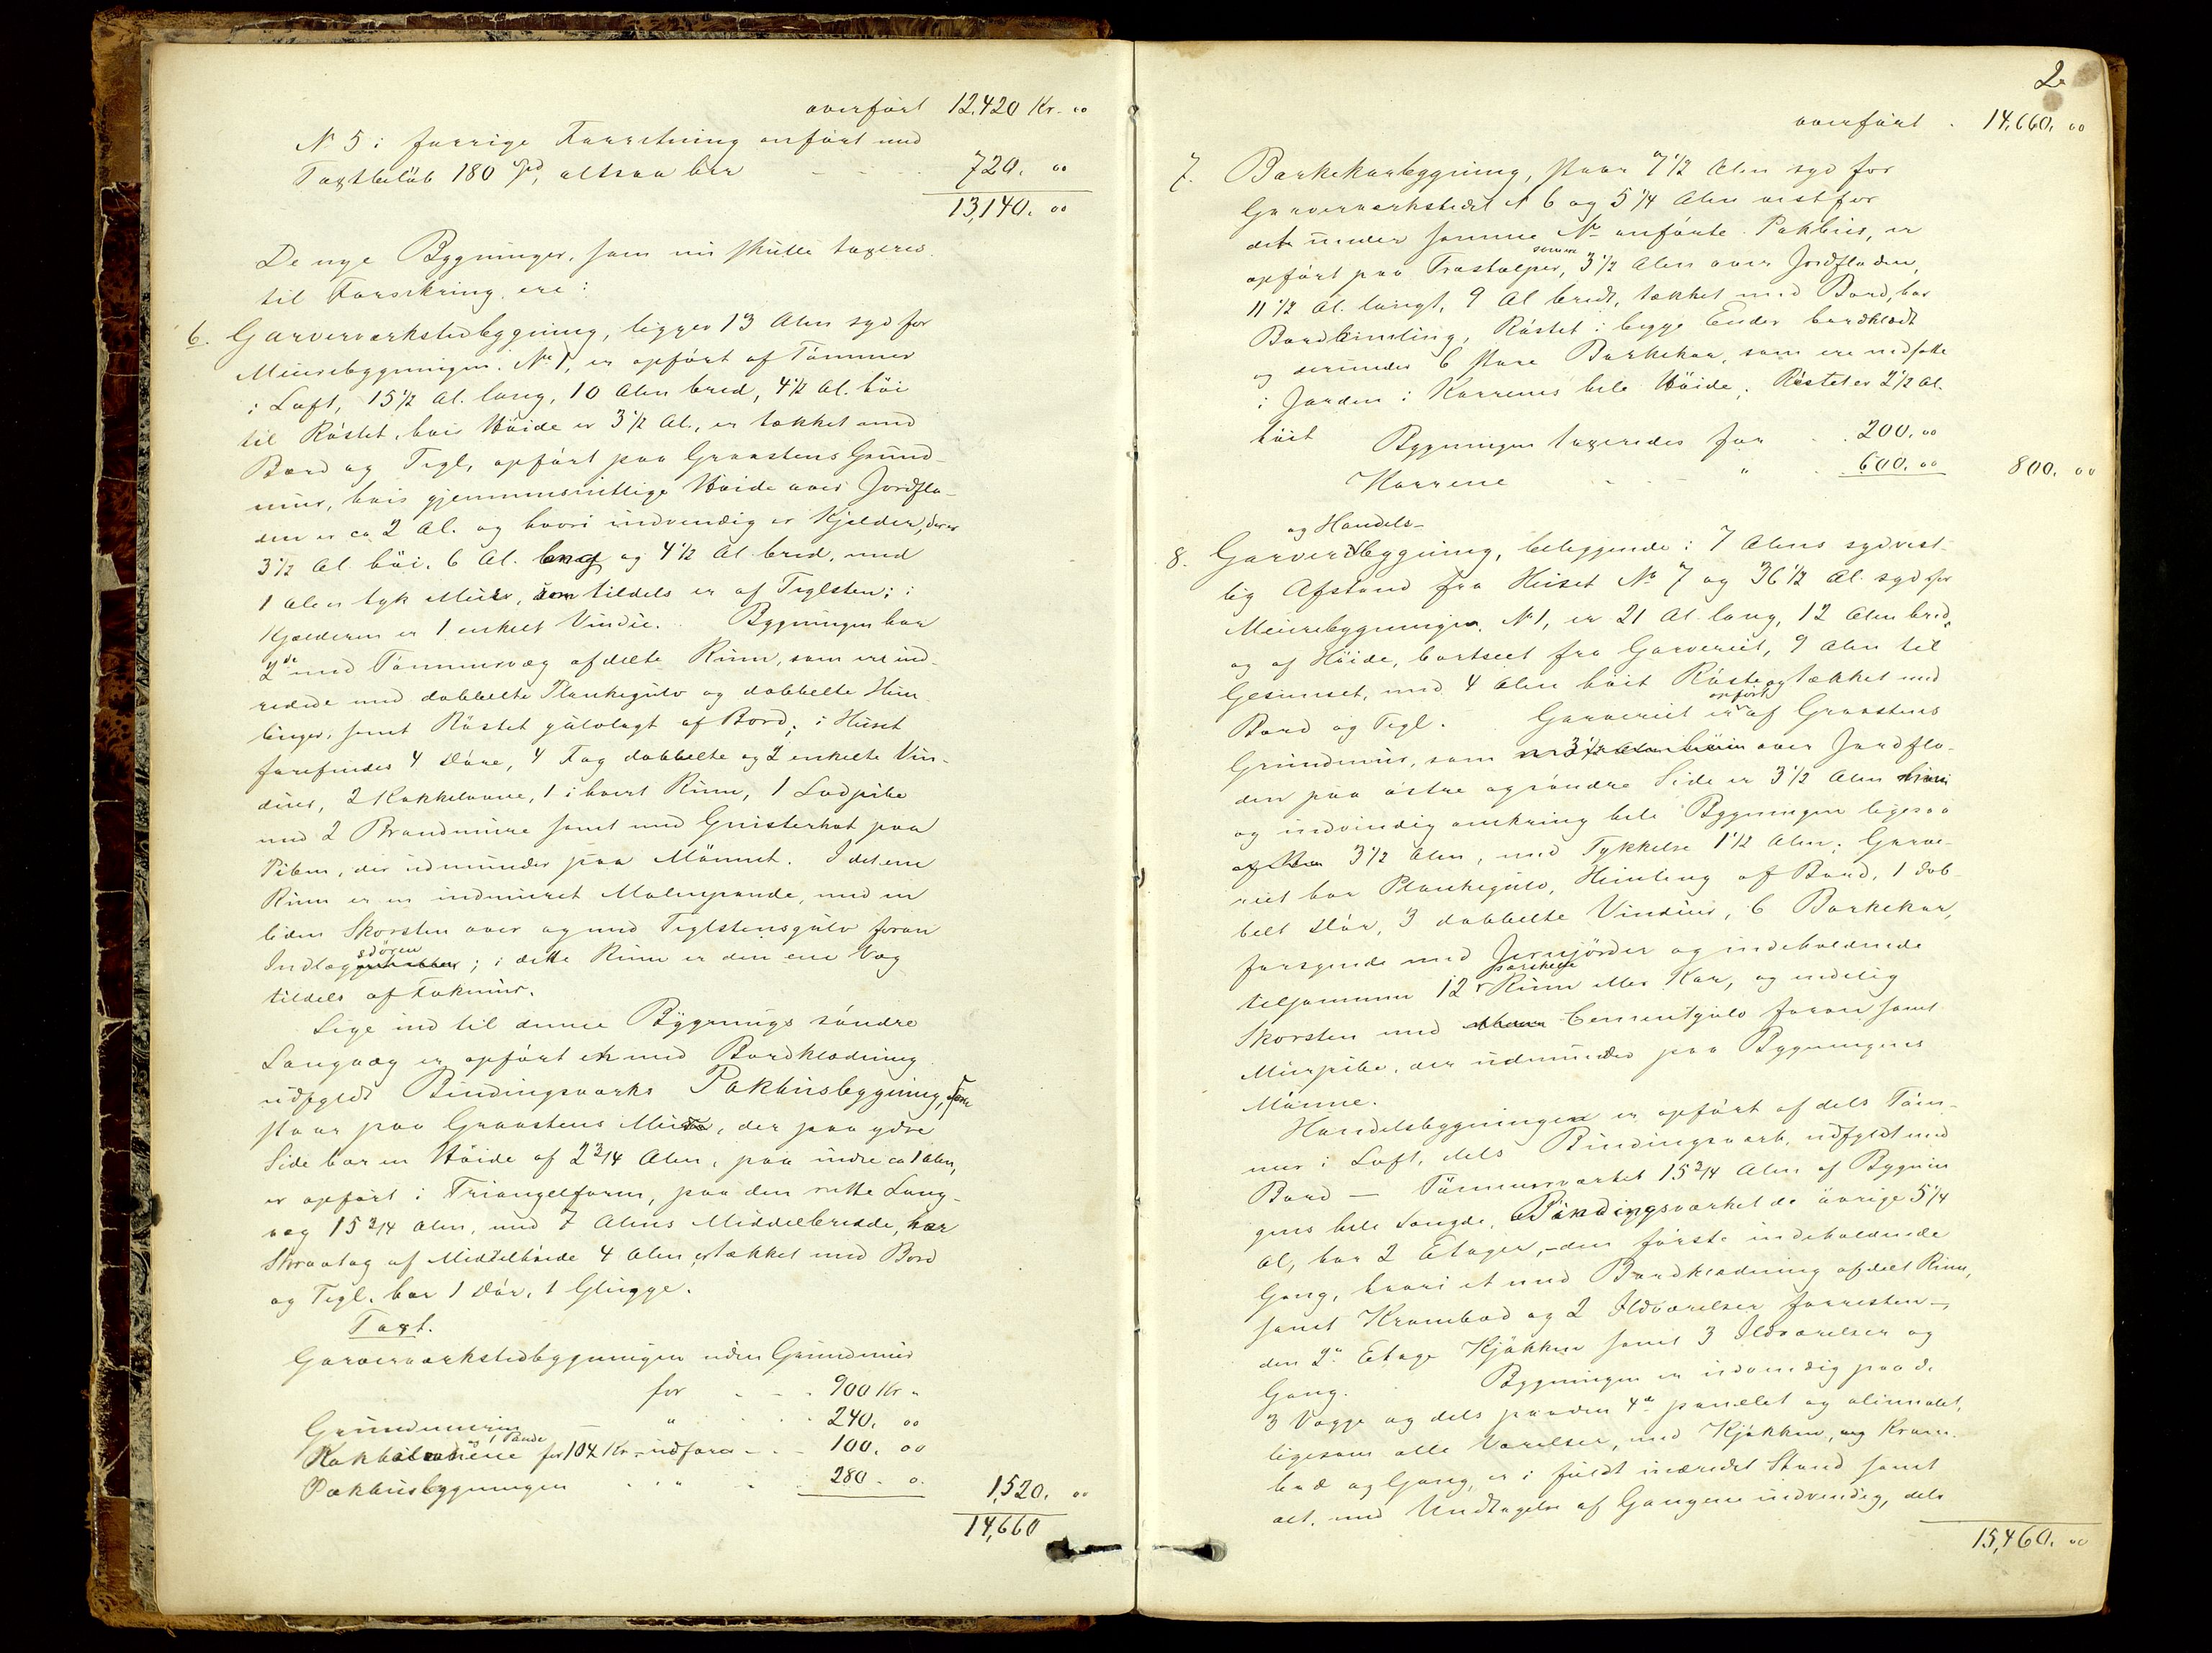 overført 12,420 Kr. 00
No 5 i forrige Forretning anført med
Taxtbeløb 180 Spd, altsaa her 720. 00
13,140. 00
De nye Bygninger, som nu skulle taxeres
til Forsikring ere:
6. Garverværkstedbygning, ligger 13 Alen syd for
Meieribygningen No 1, er opført af Tømmer
i Laft, 15 1/2 Al. lang, 10 Alen bred, 4 1/2 Al. høi
til Røstet, hvis Høide er 3 1/2 Al., er tækket med
Bord og Tegl, opført paa Graastens Grund-
mur, hvis gjennemsnitlige Høide over Jordfla-
den er ca 2 Al. og hvori indvendig er Kjelder, der er
3 1/2 Al. høi, 6 Al. lang og 4 1/2 Al bred, med
1 Alen tyk Muur, som tildels er af Teglsten; i
Kjælderen er 1 enkelt Vindue. Bygningen har
2de med Tømmervæg afdelte Rum, som ere ind-
redede med dobbelte Plankegulv og dobbelte Him-
linger, samt Røstet gulvlagt af Bord; i Huset
forefindes 4 Døre, 4 Fag dobbelte og 2 enkelte Vin-
duer, 2 Kakkelovne, 1 i hvert Rum, 1 Lodpibe
med 2 Brandmure samt med Gnisterhat paa
Piben, der udmunder paa Mønnet. I det ene
Rum er en indmuret Malmpande, med en
liden Skorsten over og med Teglstensgulv foran
sdøren
Indlæg; i dette Rum er den ene Væg
tildels af Fakmur.
Lige ind til denne Bygnings søndre
Langvæg er opført en med Bordklædning
udfyldt Bindingsværks Pakhusbygning, som
staar paa Graastens Muur, der paa ydre
Side har en Høide af 2 3/4 Alen, paa indre ca 1 Alen,
er opført i Triangelform, paa den rette Lang-
væg 15 3/4 Alen, med 7 Alens Middelbredde, har
Skraatag af Middelhøide 4 Alen, er tækket med Bord
og Tegl, har 1 Dør, 1 Glugge.
Taxt.
Garverværkstedbygningen uden Grundmur
for 900 Kr "
Grundmuren " 240. 00
og 1 Pande
Kakkelovnene for 104 Kr. udføres 100. 00
Pakhusbygningen " 280. 0. 1,520. 00
14,660
2.
overført 14,660. 00
7. Barkekarbygning, staar 7 1/2 Alen syd for
Garverværkstedet No 6 og 5 1/4 Alen vest for
det under samme No anførte Pakhus, er
opført paa Træstolper, 3 1/2 Alen over Jordfladen,
11 1/2 Al. langt, 9 Al bredt, tækket med Bord, har
Bordhimling, Røstet i begge Ender bordklædt
og derunder 6 store Barkekar, som ere nedsatte
i Jorden i Karrenes hele Høide; Røstet er 2 1/2 Al.
høit Bygningen taxeredes for 200. 00
Karrene " 600. 00 800. 00
og Handels-
8. Garveribygning, beliggende i 7 Alens sydvest-
lig Afstand fra Huset No 7 og 36 1/2 Al. syd for
Meieribygningen No 1, er 21 Al. lang, 12 Alen bred,
og af Høide, bortseet fra Garveriet, 9 Alen til
Gesimset, med 4 Alen høit Røste og tækket med
opført
Bord og Tegl. Garveriet er af Graastens
Grundmur, som over Jordfla-
den paa østre og søndre Side er 3 1/2 Alen
og indvendig omkring hele Bygningen ligesaa
3 1/2 Alen, med Tykkelse 1 1/2 Alen; Garve-
riet har Plankegulv, Himling af Bord, 1 dob-
belt Dør, 3 dobbelte Vinduer, 6 Barkekar,
forsynede med Jerngjorder og indeholdende
særskilte
tilsammen 12 Rum eller Kar, og endelig
Skorsten med Cementgulv foran samt
Muurpibe, der udmunder paa Bygningens
Mønne.
Handelsbygningen er opført af dels Tøm-
mer i Laft, dels Bindingsværk, udfyldt med
Bord — Tømmerværket 15 3/4 Alen af Bygnin
gens hele Længde, Bindingsværket de øvrige 5 1/4
Al, har 2 Etager, - den første indeholdende
Gang, hvori et med Bordklædning afdelt Rum,
samt Krambod og 2 Ildværelser forresten -,
den 2n Etage Kjøkken samt 3 Ildværelser og
Gang. Bygningen er indvendig paa de
3 Vægge og dels paa den 4de panelet og oliemalet,
ligesom alle Værelser, med Kjøkken, og Kram-
bod og Gang, er i fuldt indredet Stand samt
alt, med Undtagelse af Gangene indvendig, dels
15,460. 00